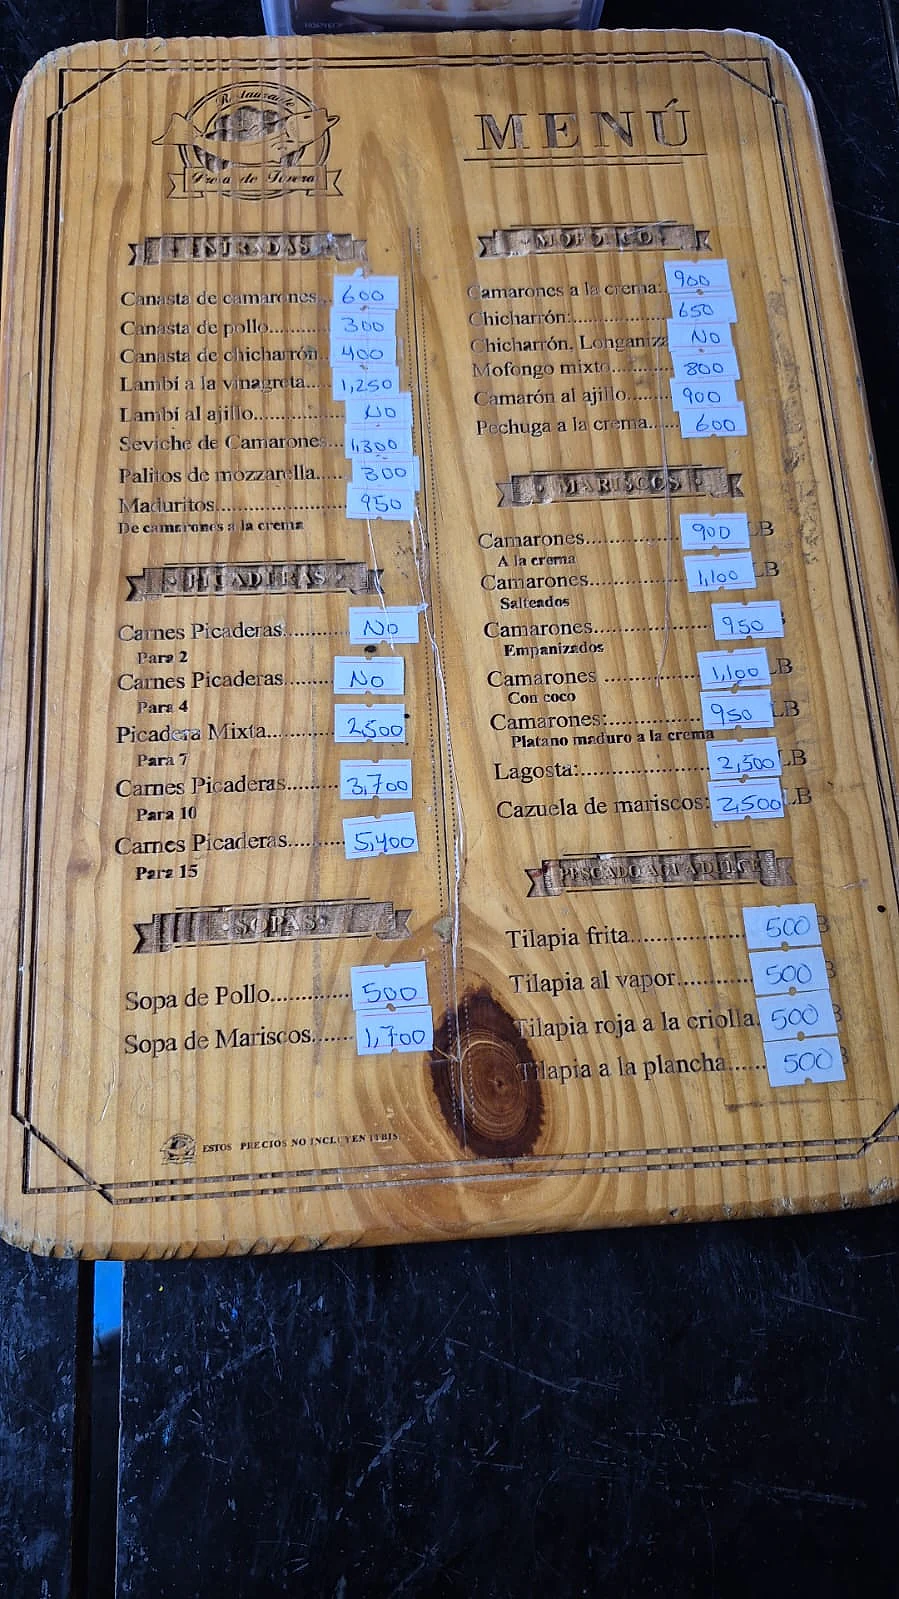 Restaurante
Presa de Tavera
MENÚ
ENTRADAS
Canasta de camarones... 600
Canasta de pollo.......... 300
Canasta de chicharrón.. 400
Lambí a la vinagreta..... 1,250
Lambí al ajillo............... NO
Seviche de Camarones... 1,300
Palitos de mozzarella..... 300
Maduritos 950
De camarones a la crema
PICADERAS
Carnes Picaderas.......... NO
Para 2
Carnes Picaderas........ NO
Para 4
Picadera Mixta............ 2,500
Para 7
Carnes Picaderas........ 3,700
Para 10
Carnes Picaderas......... 5,400
Para 15
SOPAS
Sopa de Pollo............ 500
Sopa de Mariscos....... 1,700
ESTOS PRECIOS NO INCLUYEN ITBIS.
MOFONGO
Camarones a la crema: 900
Chicharrón:............... 650
Chicharrón, Longaniza NO
Mofongo mixto.......... 800
Camarón al ajillo........ 900
Pechuga a la crema..... 600
MARISCOS
Camarones............... 900 LB
A la crema
Camarones............... 1,100 LB
Salteados
Camarones................... 950
Empanizados
Camarones ............... 1,100 LB
Con coco
Camarones:............... 950 LB
Platano maduro a la crema
Lagosta:................... 2,500 LB
Cazuela de mariscos: 2,500 LB
PESCADO AGUA DULCE
Tilapia frita................. 500 B
Tilapia al vapor........... 500 B
Tilapia roja a la criolla. 500 B
Tilapia a la plancha...... 500 B